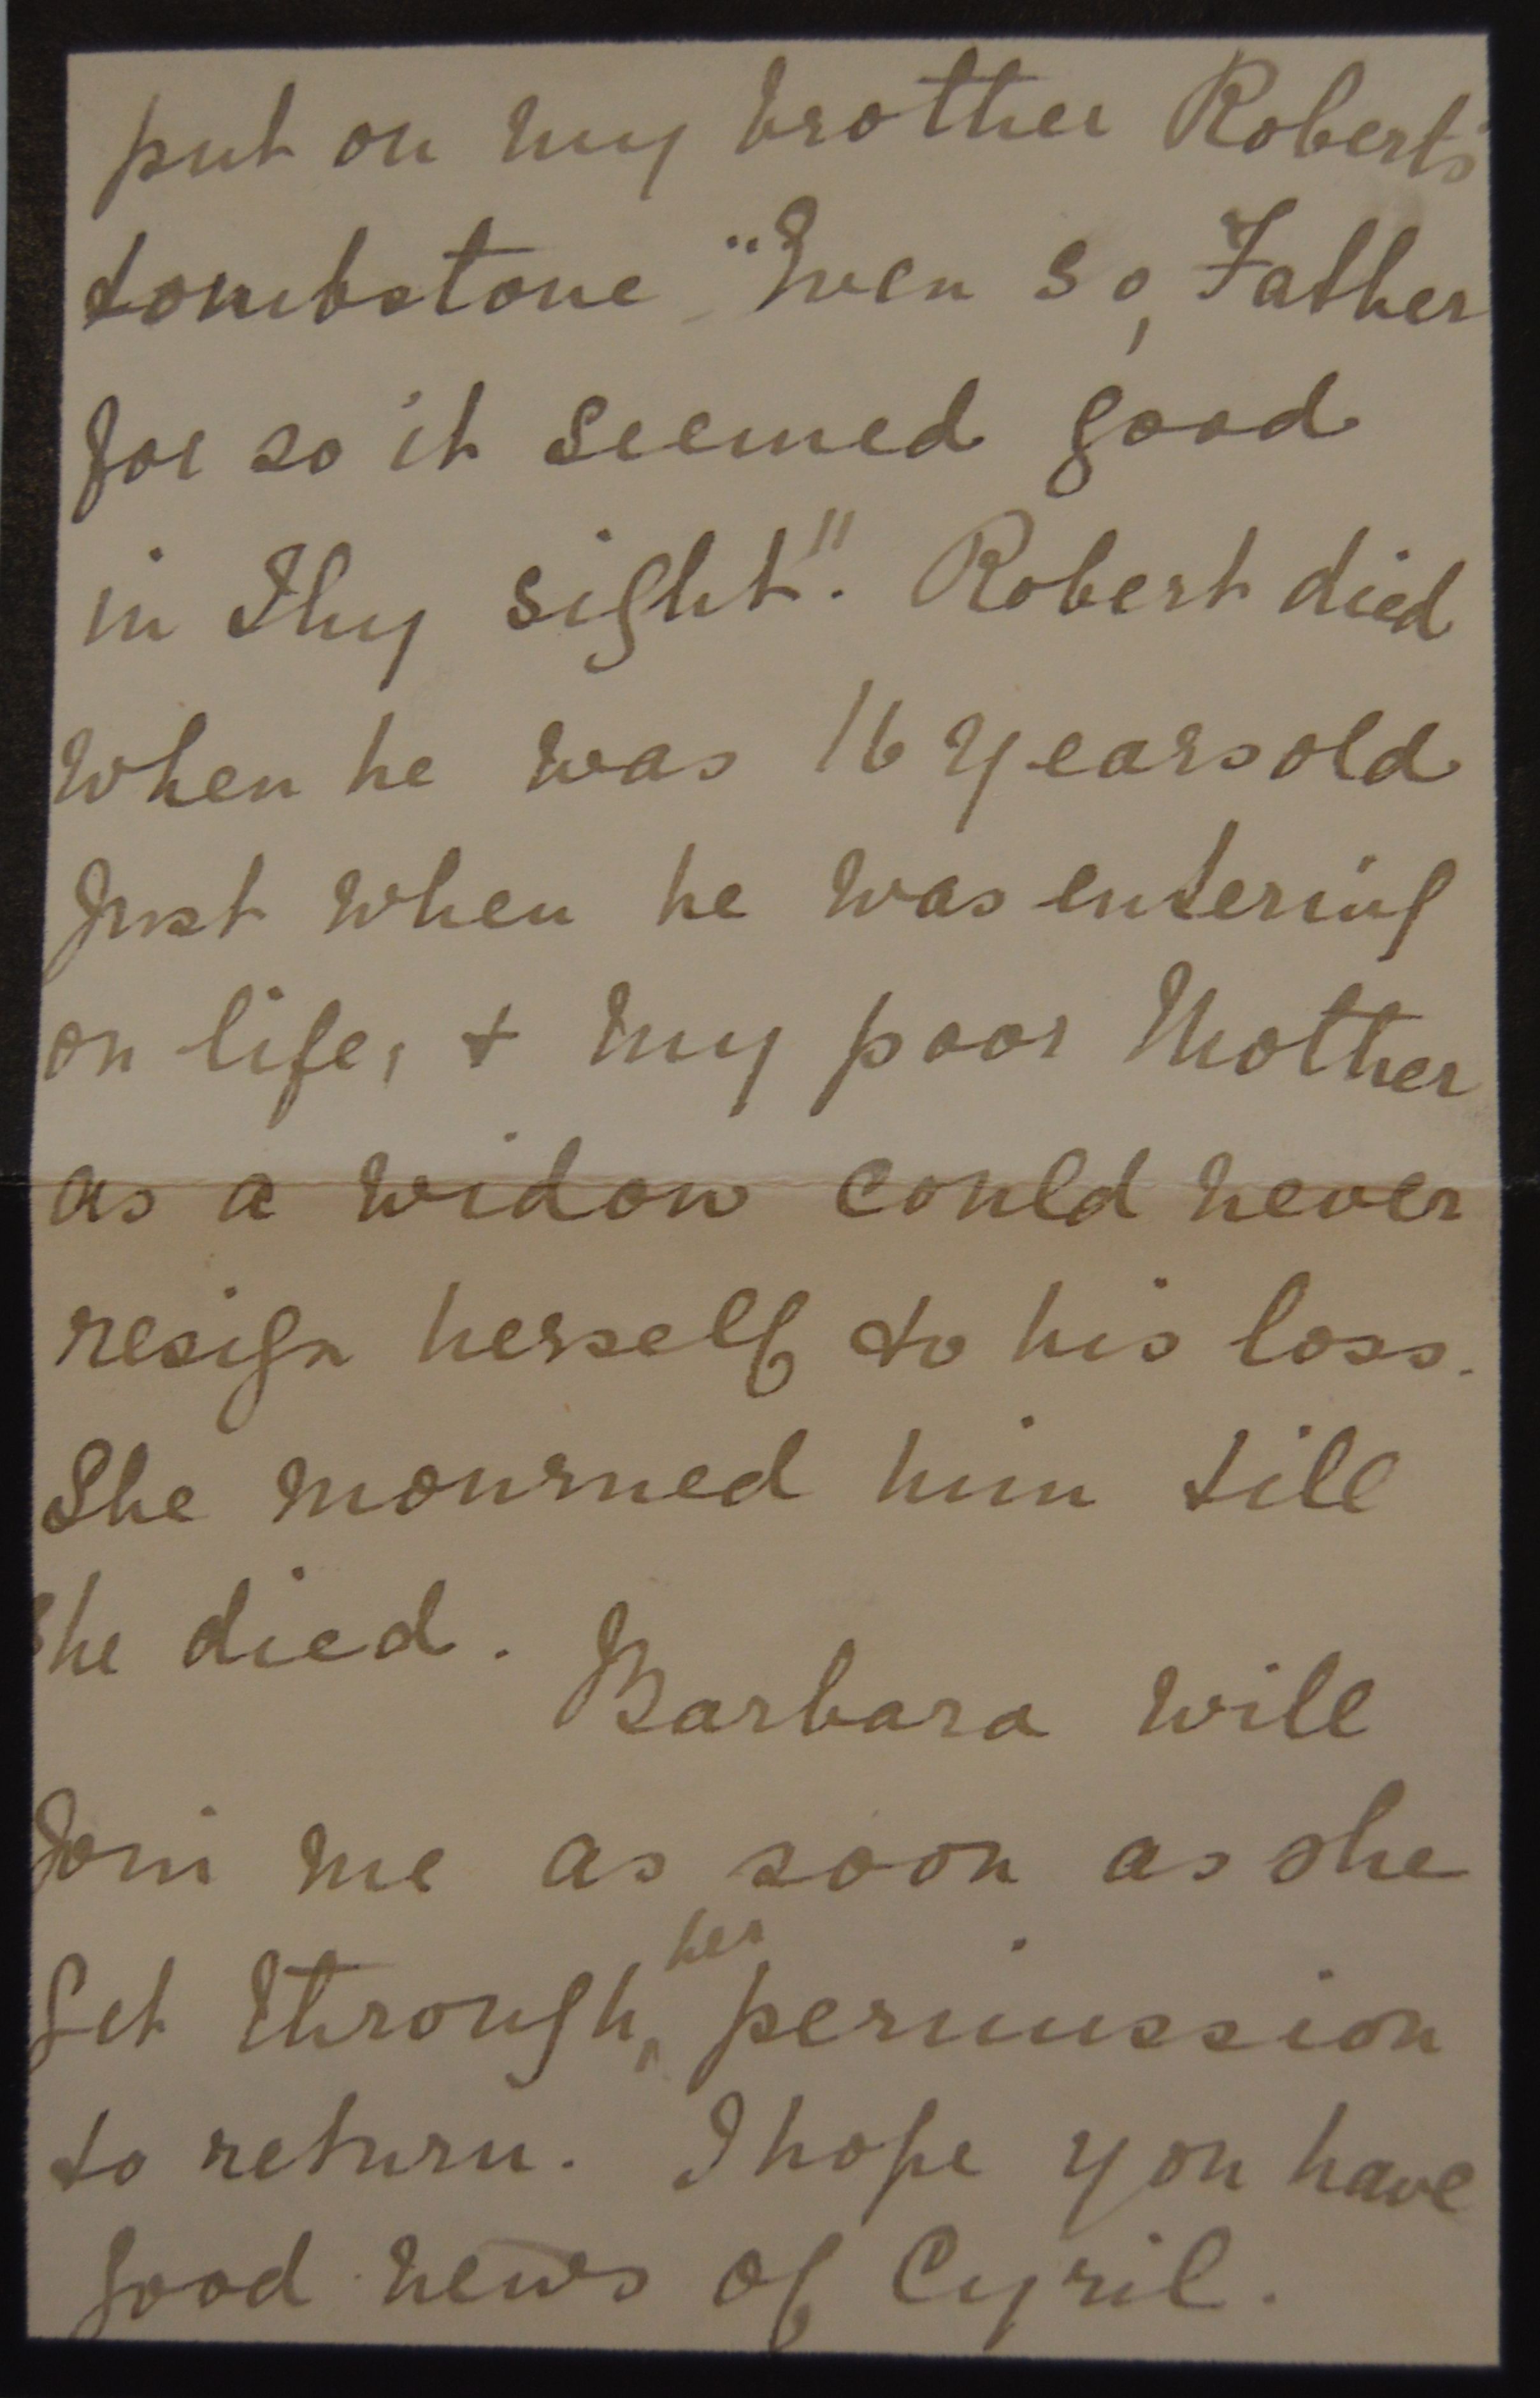 put on my brother Robert's
tombstone "Even so, Father
for so it seemed good
in Thy sight". Robert died
when he was 16 years old
Just when he was entering
on life, + my poor Mother
as a widow could never
resign herself to his loss.
She mourned him till
she died. Barbara will
Join me as soon as she
get through her permission
to return. I hope you have
good news of Cyril.